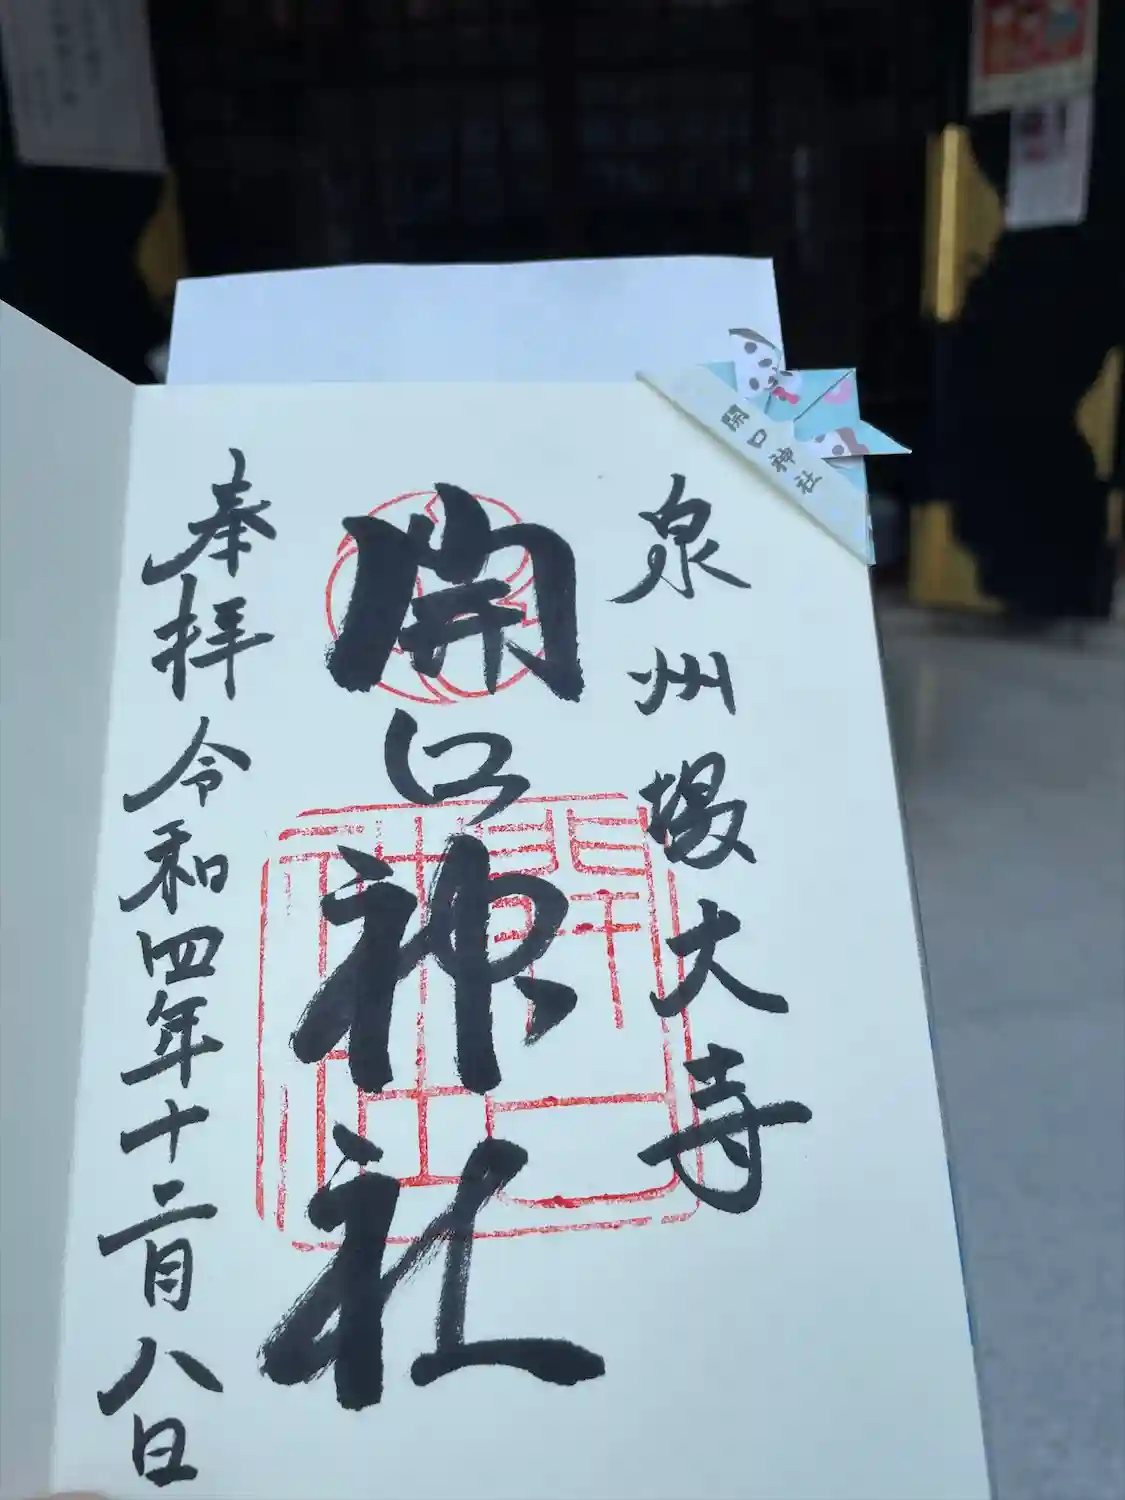 泉州堺大寺
開口神社
奉拝 令和四年十二月八日
開口神社